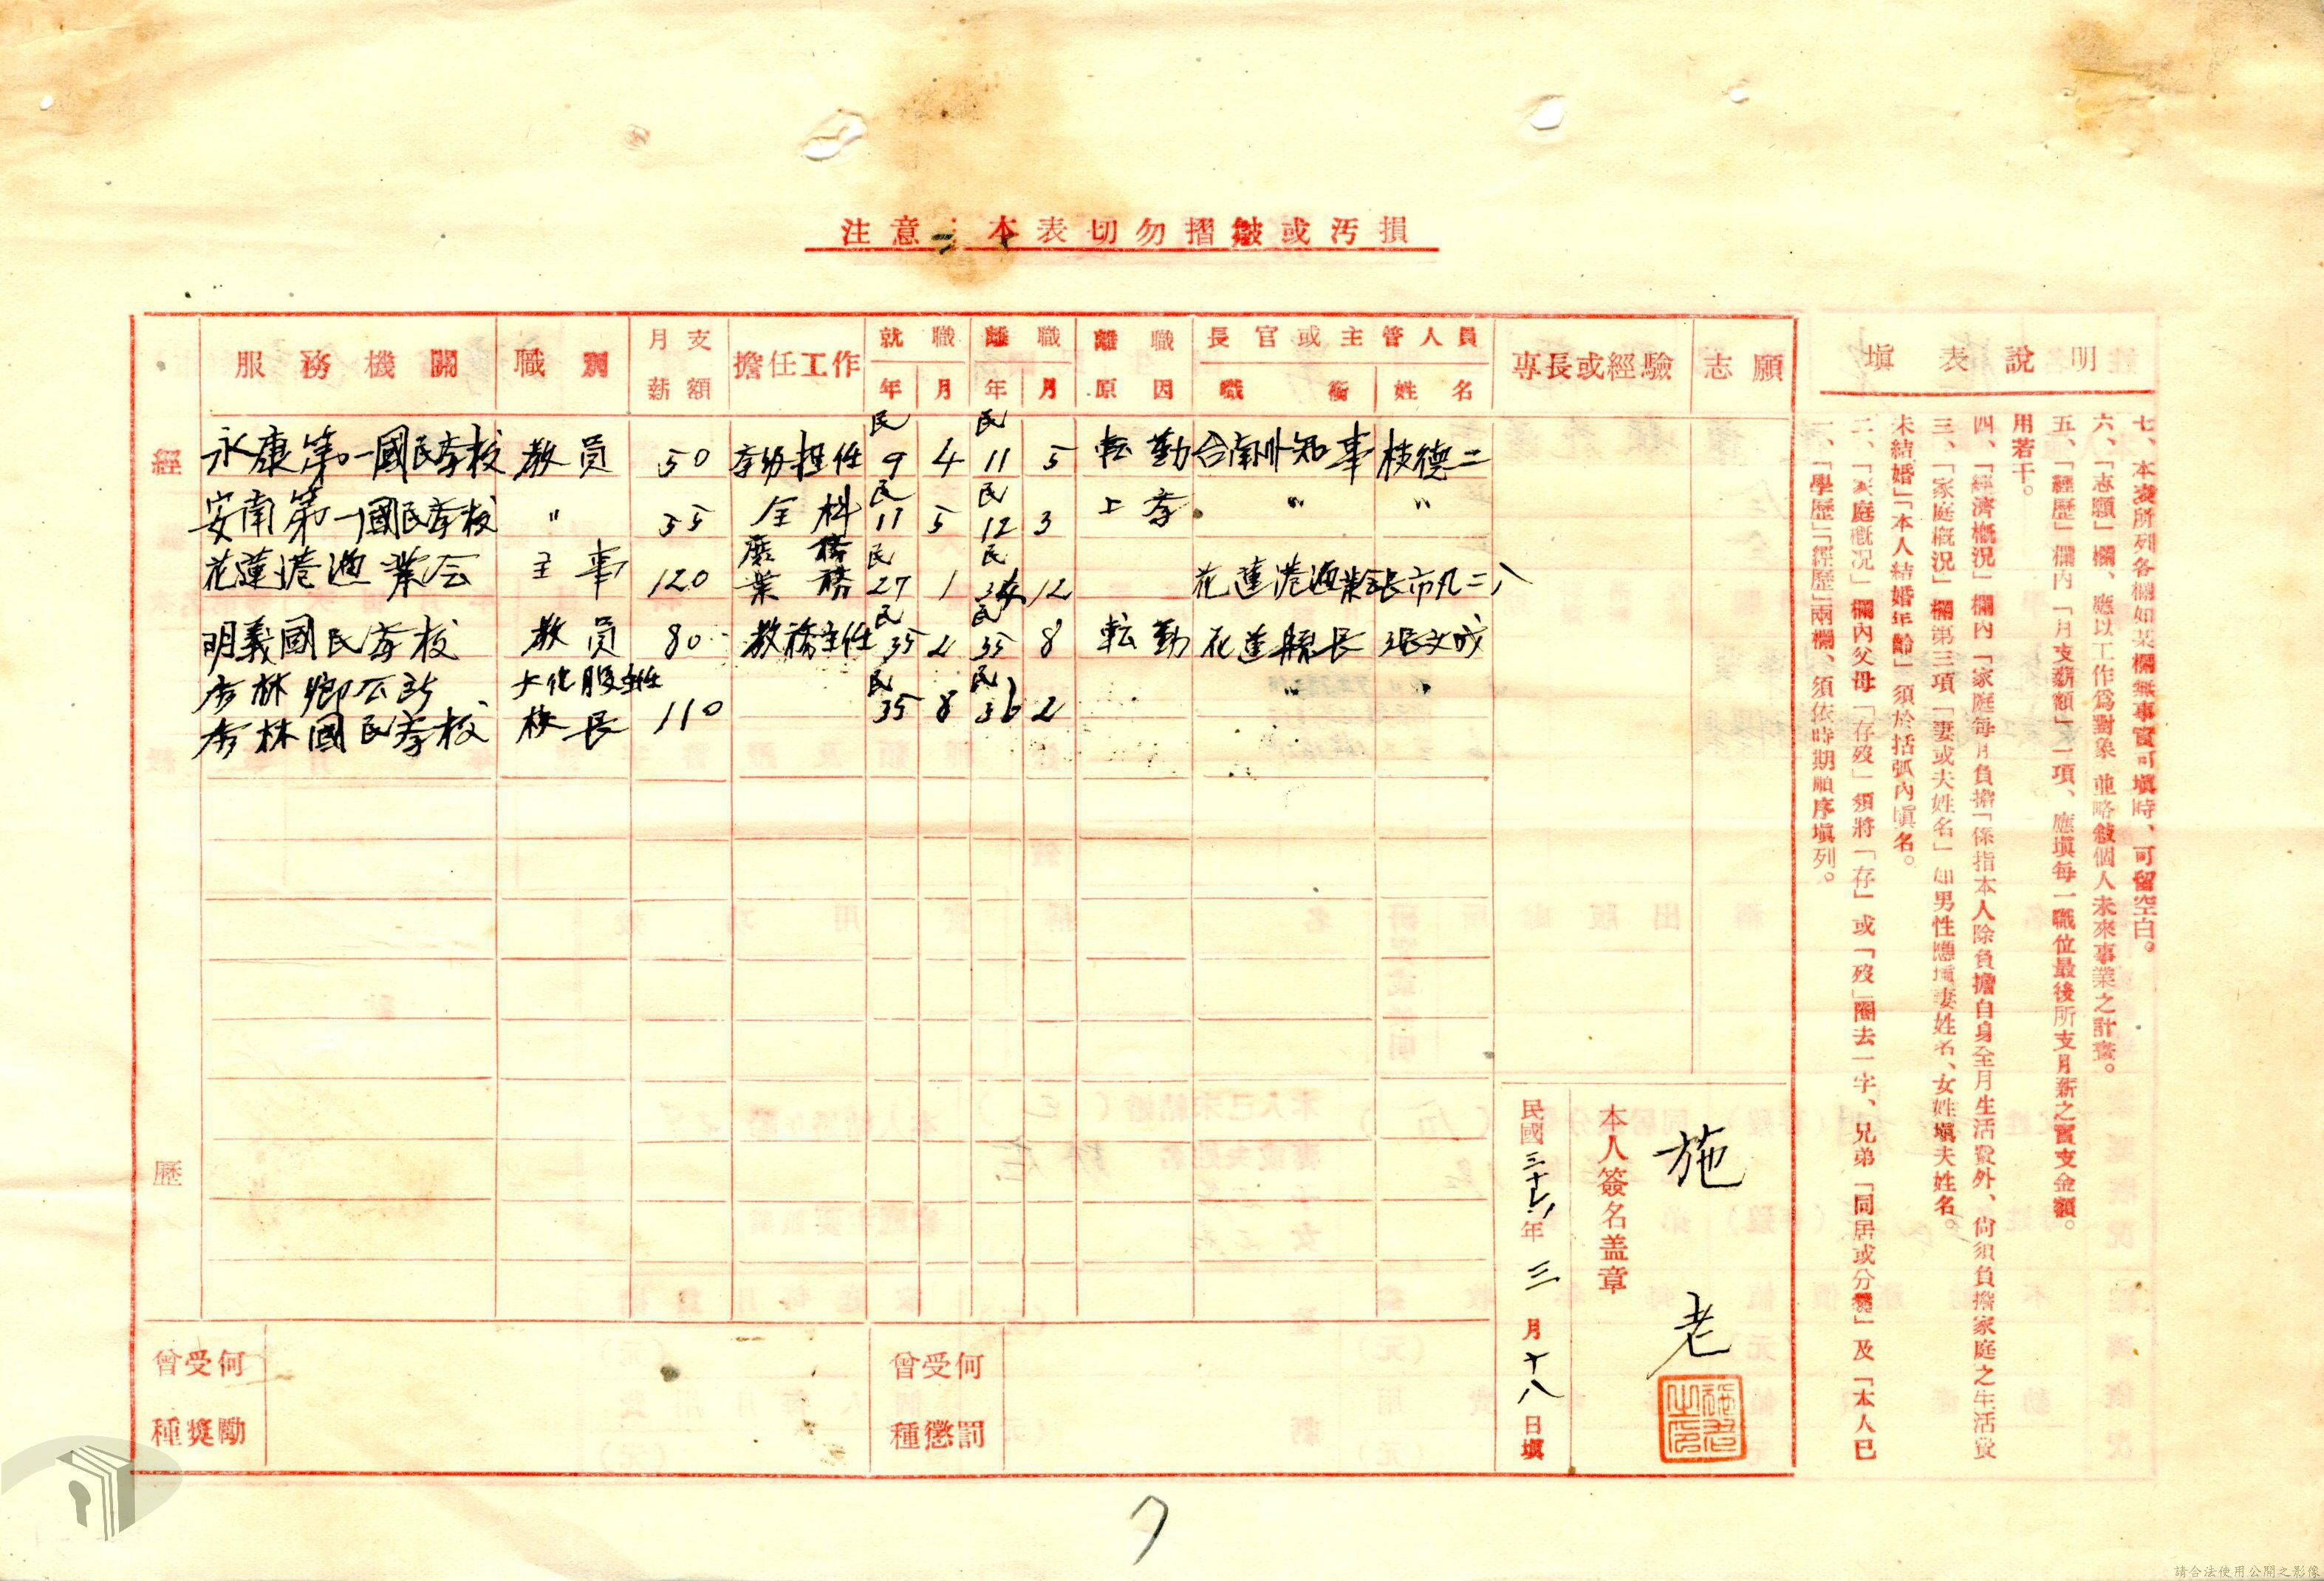 注意：本表切勿摺皺或汚損
經歷
服務機關 職別 月支薪額 擔任工作 就職年月 離職年月 離職原因 長官或主管人員職銜 姓名 專長或經驗 志願
永康第一國民学校 教員 50 学級担任 民9 4 民11 5 転勤 台南州知事 枝德二
安南第一國民学校 〃 55 全科 民11 5 民12 3 上学 〃 〃
花蓮港漁業会 主事 120 業務 民27 1 民 12 花蓮港漁業会長
明義國民学校 教員 80 教務主任 民35 2 民35 8 転勤 花蓮縣長 張文成
秀林鄉公所 文化股主任
秀林國民学校 校長 110 民35 8 民36 2 〃 〃
曾受何種獎勵
曾受何種懲罰
本人簽名盖章
施老
施老之印
民國三十六年三月十八日塡
塡表說明
一、「學歷」「經歷」兩欄、須依時期順序塡列。
二、「家庭概况」欄內父母「存歿」須將「存」或「歿」圈去一字、兄弟「同居或分爨」及「本人已
未結婚」「本人結婚年齡」須於括弧內塡名。
三、「家庭概况」欄第三項「妻或夫姓名」如男性應塡妻姓名、女姓塡夫姓名。
四、「經濟概況」欄內「家庭每月負擔」係指本人除負擔自身全月生活費外、尙須負擔家庭之生活費
用若干。
五、「經歷」欄內「月支薪額」一項、應塡每一職位最後所支月薪之實支金額。
六、「志願」欄、應以工作爲對象 並略敍個人未來事業之計畫。
七、本表所列各欄如某欄無事實可塡時、可留空白。
7
請合法使用公開之影像